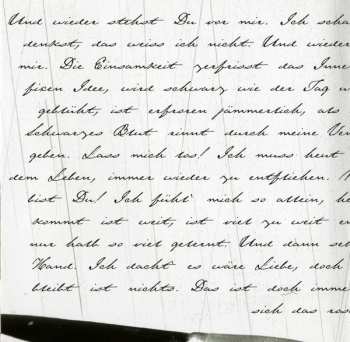 Und wieder stehst Du vor mir. Ich scha
denkst, das weiss ich nicht. Und wieder
mir. Die Einsamkeit zerfrisst das Inne
fixen Idee, wird schwarz wie der Tag u
geblüht, ist erfroren jämmerlich, als
Schwarzes Blut rinnt durch meine Ven
geben. Lass mich los! Ich muss heut
dem Leben, immer wieder zu entfliehen.
bist Du! Ich fühl' mich so allein, he
kommt ist weit, ist viel zu weit en
nur halb so viel gelernt. Und dann se
Hand. Ich dacht es wäre Liebe, doch
bleibt ist nichts. Das ist doch imme
sich das ros